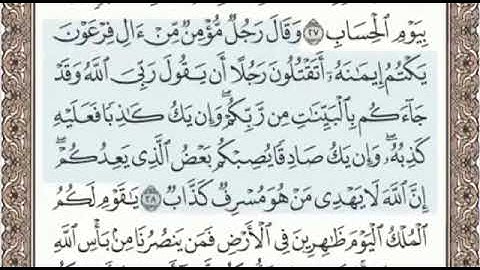 بِيَوْمِ ٱلْحِسَابِ ٢٧ وَقَالَ رَجُلٌ مُّؤْمِنٌ مِّنْ ءَالِ فِرْعَوْنَ
يَكْتُمُ إِيمَٰنَهُۥٓ أَتَقْتُلُونَ رَجُلًا أَن يَقُولَ رَبِّىَ ٱللَّهُ وَقَدْ
جَآءَكُم بِٱلْبَيِّنَٰتِ مِن رَّبِّكُمْ ۖ وَإِن يَكُ كَٰذِبًا فَعَلَيْهِ
كَذِبُهُۥ ۖ وَإِن يَكُ صَادِقًا يُصِبْكُم بَعْضُ ٱلَّذِى يَعِدُكُمْ ۖ
إِنَّ ٱللَّهَ لَا يَهْدِى مَنْ هُوَ مُسْرِفٌ كَذَّابٌ ٢٨ يَٰقَوْمِ لَكُمُ
ٱلْمُلْكُ ٱلْيَوْمَ ظَٰهِرِينَ فِى ٱلْأَرْضِ فَمَن يَنصُرُنَا مِنۢ بَأْسِ ٱللَّهِ